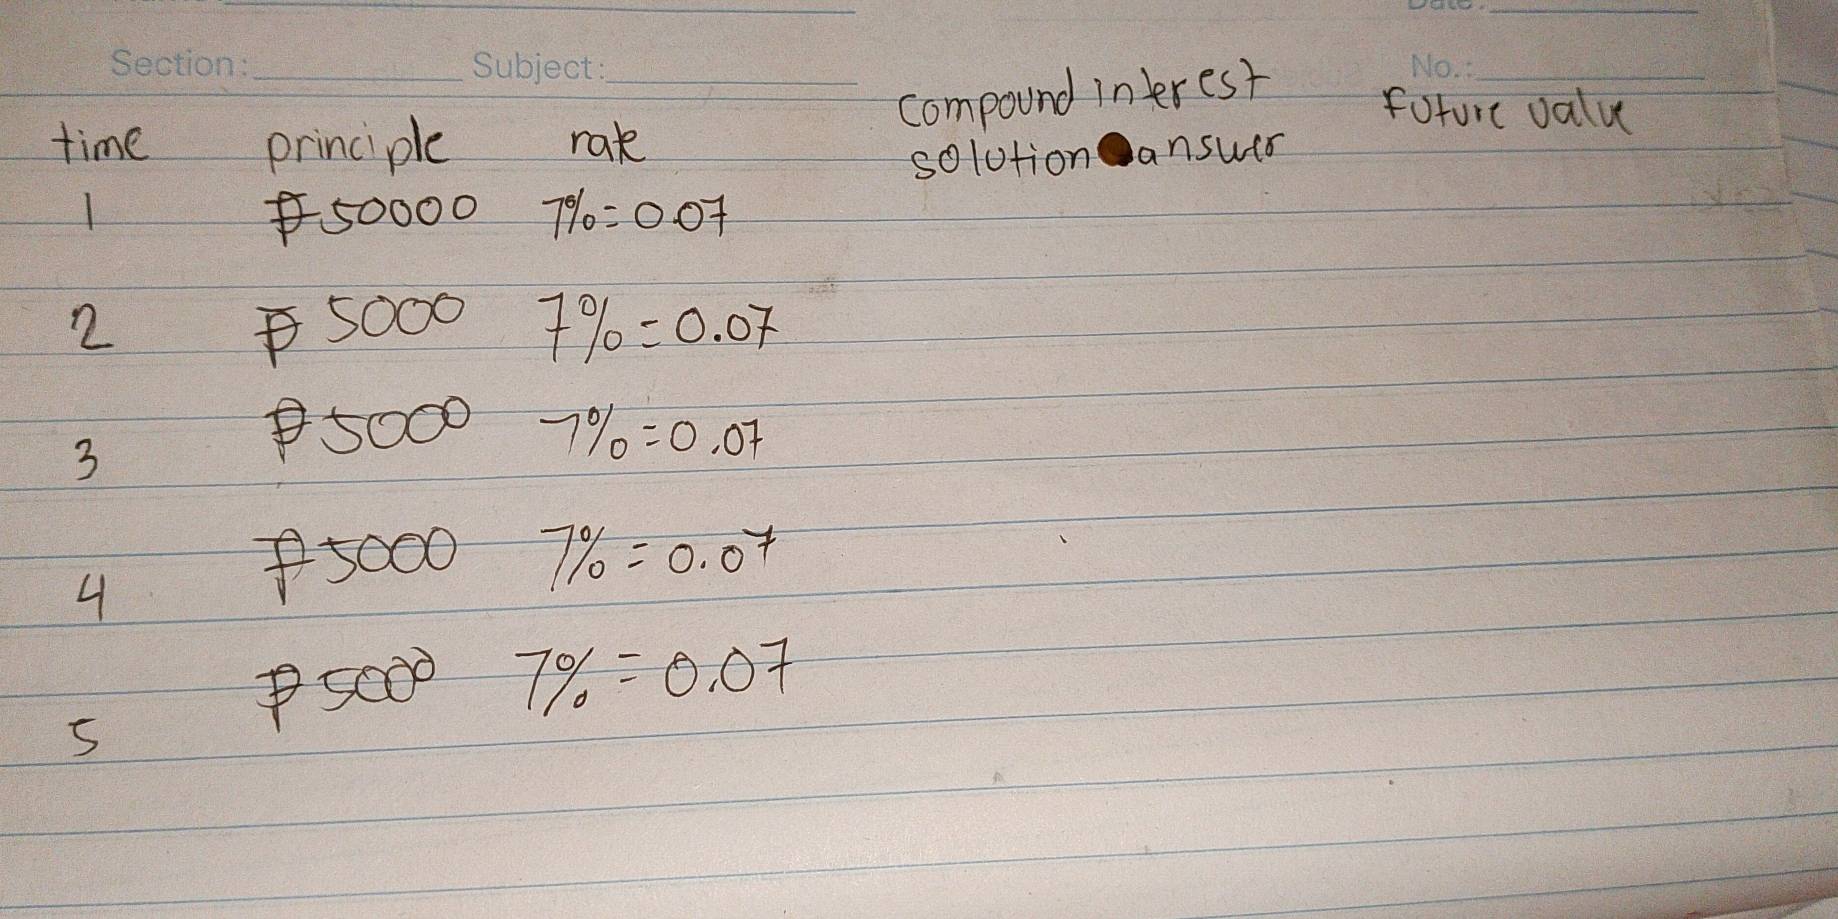 Date:
Section: Subject: No.:
time principle rate compound interest solution answer Future value
1 ₱50000 7%=0.07
2 ₱5000 7%=0.07
3 ₱5000 7%=0.07
4 ₱5000 7%=0.07
5 ₱5000 7%=0.07